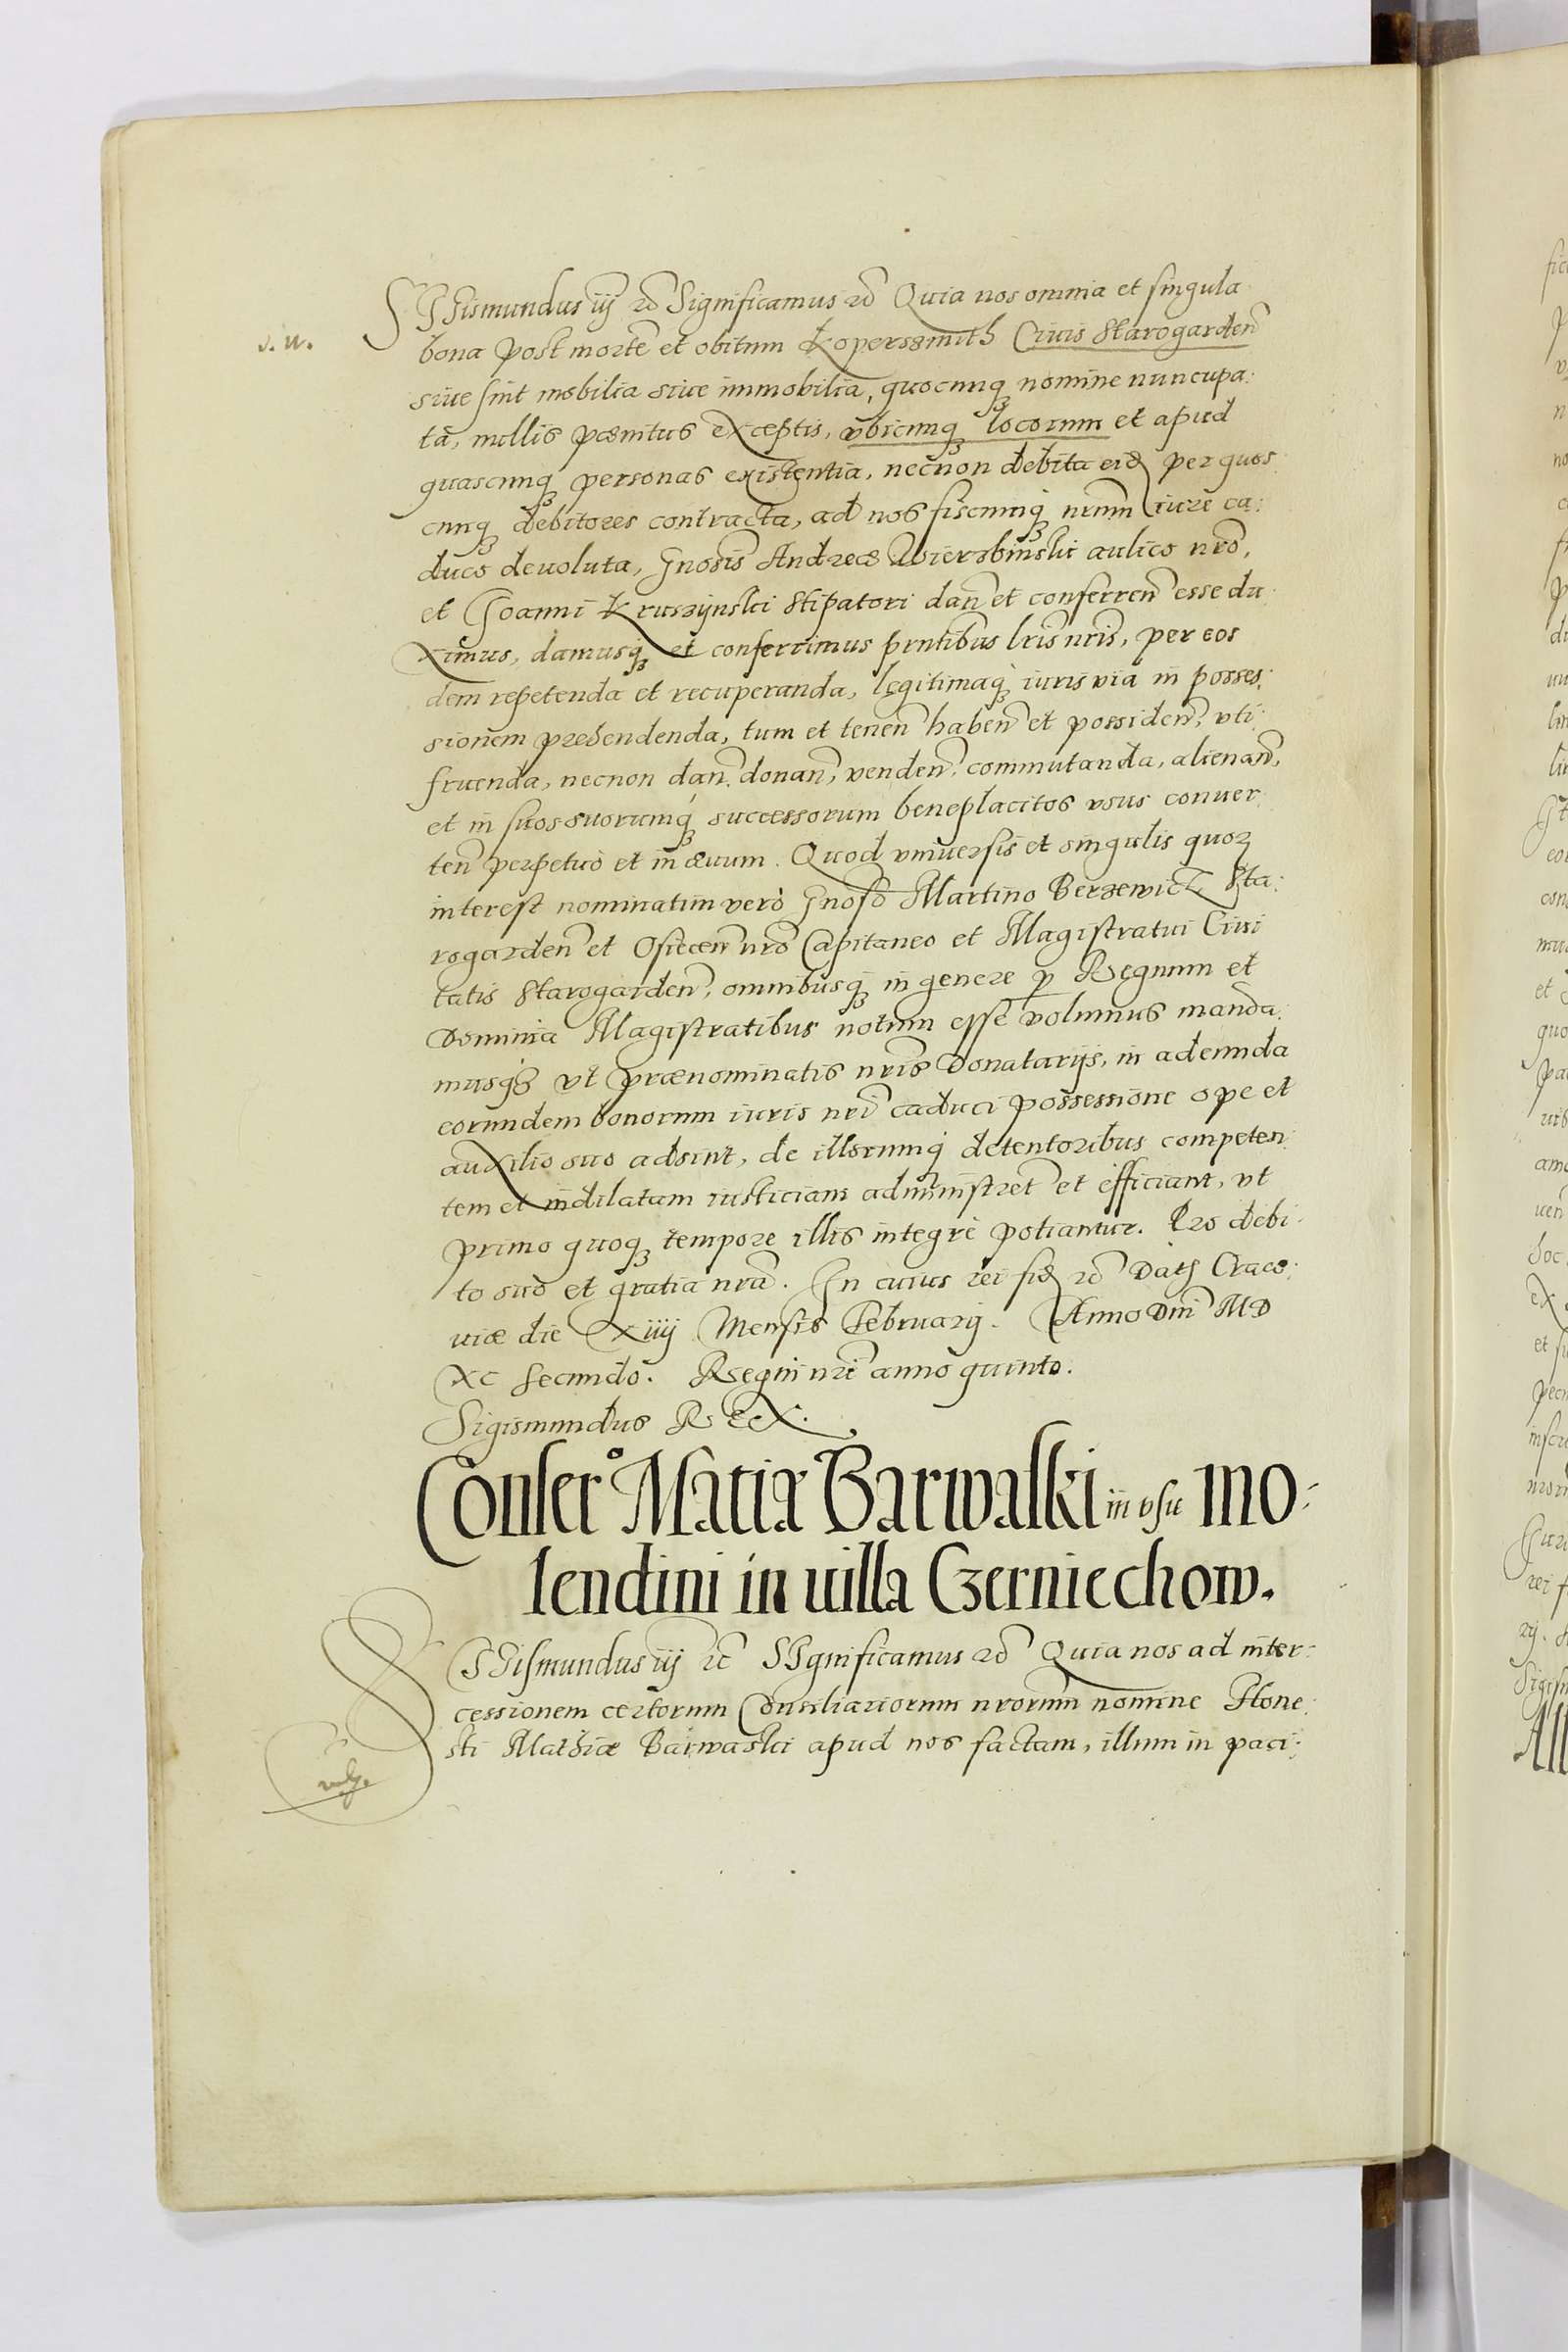 SIGismundus iij etc Significamus etc Quia nos omnia et singula
bona post mortē et obitum Kopersmith Civis Starogarden
sive sint mobilia sive immobilia, quocunq nomine nuncupa:
ta, nullis pœnitus exceptis, vbicunq locorum et apud
quascunq personas existentia, necnon debita eid per quos
cunq debitores contracta, ad nos fiscumq nrum iure ca:
duco devoluta, Gnosis Andreæ Wierzbinski aulico nro,
et Joanni Kruszijnski Stipatori dan et conferren esse du
ximus, damusq et conferrimus prntibus lris nris, per eos
dem repetenda et recuperanda, legitimaq iuris via in posses:
sionem prehendenda, tum et tenen haben et possiden, vti
fruenda, necnon dan, donan, venden, commutanda, alienan,
et in suos suorumq successorum beneplacitos vsus conver
ten perpetuò et in ævum. Quod vniversis et singulis quor
interest nominatim verò Gnoso Martino Berzewicz Sta:
rogarden et Osiecen nro Capitaneo et Magistratui Civi
tatis Starogarden, omnibusq in genere p Regnum et
Dominia Magistratibus notum esse volumus manda:
musq vt prænominatis nris Donatarijs, in adeunda
eorundem bonorum iuris nri caduci possessione ope et
auxilio suo adsint, de illorumq detentoribus competen:
tem et indilatam iusticiam administret et efficiant, vt
primo quoq tempore illis integrè potiantur. Pro debi:
to suo et gratia nra. In cuius rei fid etc Dath Craco:
viæ die Xiiij Mensis Februarij. Anno Dni MD
XC Secundo. Regni nri anno quinto.
Sigismundus REX.
Conser° Matiæ Barwalski in vsu mo:
lendini in villa Czerniechow.
SIGismundus iij etc SIgnificamus etc Quia nos ad inter:
cessionem certorum Consiliariorum nrorum nomine Hone:
sti Mathiæ Barwaski apud nos factam, illum in paci: